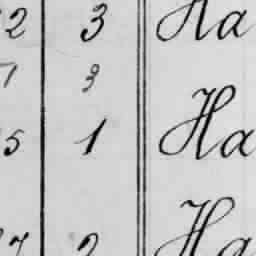 2 3 Ha
7 3
5 1 Ha
7 2 Ha